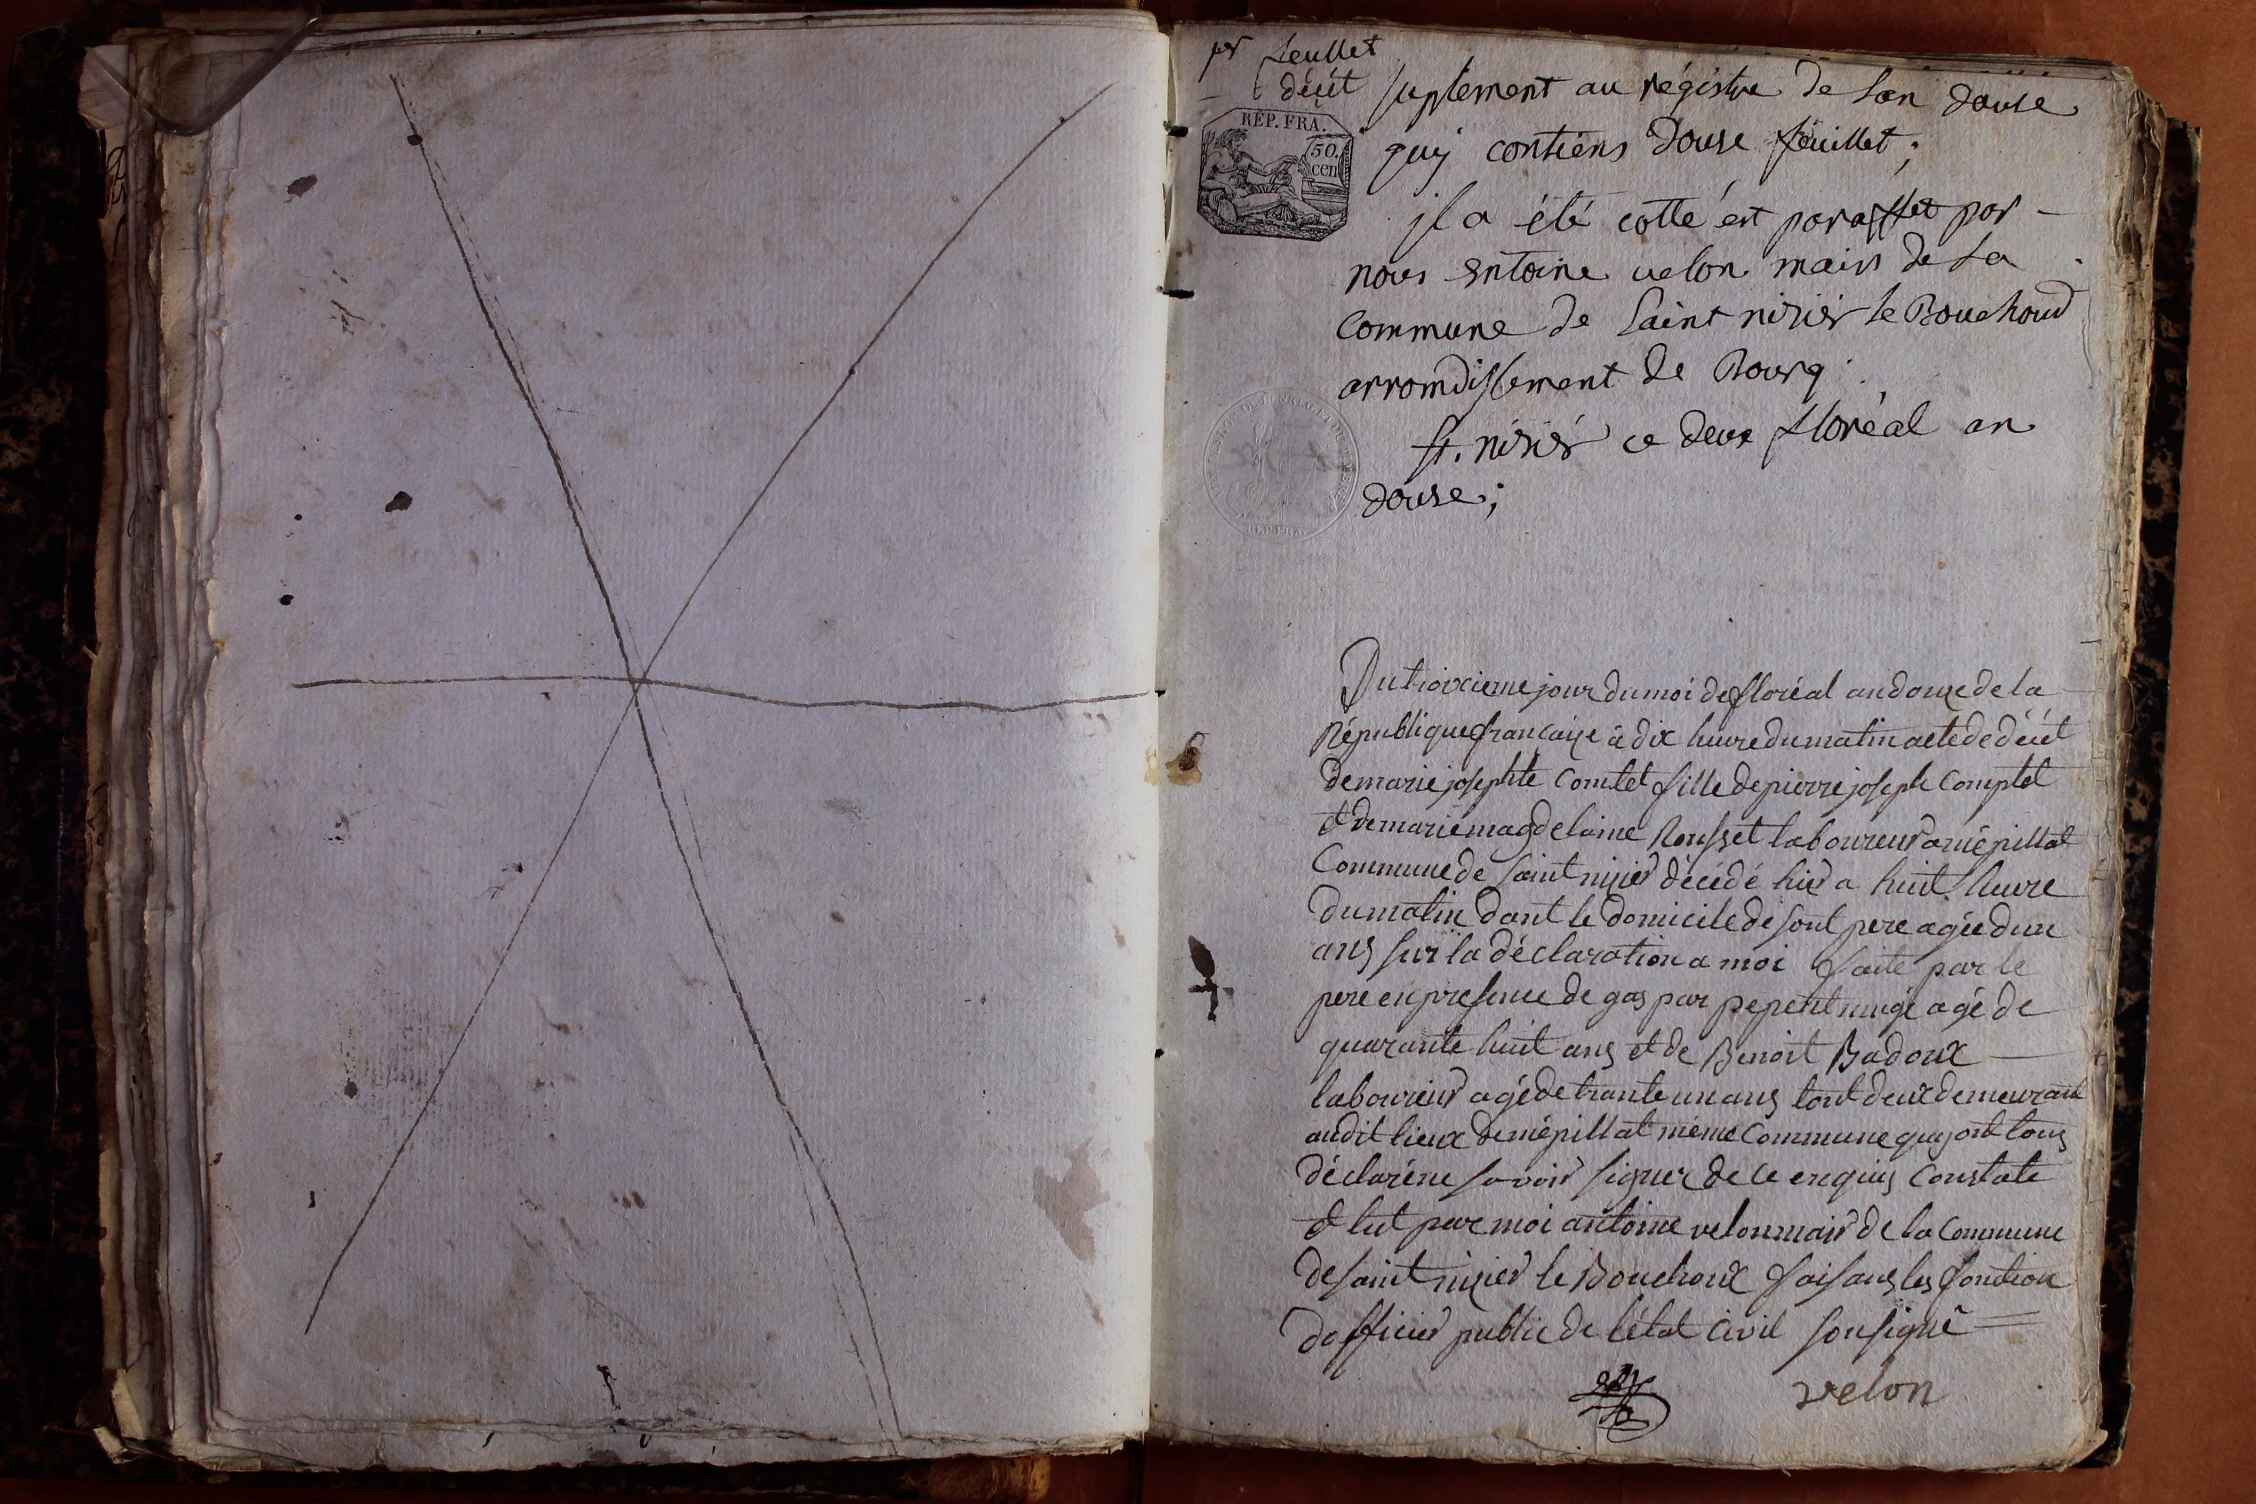 per feullet
décét
suplement au régistre de Lan douse
quy contiens douse feuillet ;
RÉP. FRA.
50.
cen
jl a été cotté ert paraffet par
nous entoine velon mair de la
commune de saint nisier le Bouchoud
arromdissement de Bourg
st. nisiér ce deux floréal an
douse ;
Du troixieme jour du moi de floréal an douze de la
République francaise à dix heure du matin acte de décét
de marie josephte Comtet fille de pierre joseph Comptet
et de marie magdelaine Rousset laboureur a mépillat
Commune de saint nizier décédé hier a huit heure
du matin dant le domicile de sont pere agée dun
ans sur la déclaration a moi faite par le
pere en presence de gaspar pepent agé de
quarante huit ans et de Benoit Badoux
laboureur agé de trante un ans tout deux demeurant
audit lieux de mépillat même Commune quy ont tous
déclaréne savoir signer de ce enquis Constate
et lut par moi antoine velon mair de la Commune
de saint nizier le Bouchoux faisans les fonction
dofficier public de l'état Civil sousigné
velon